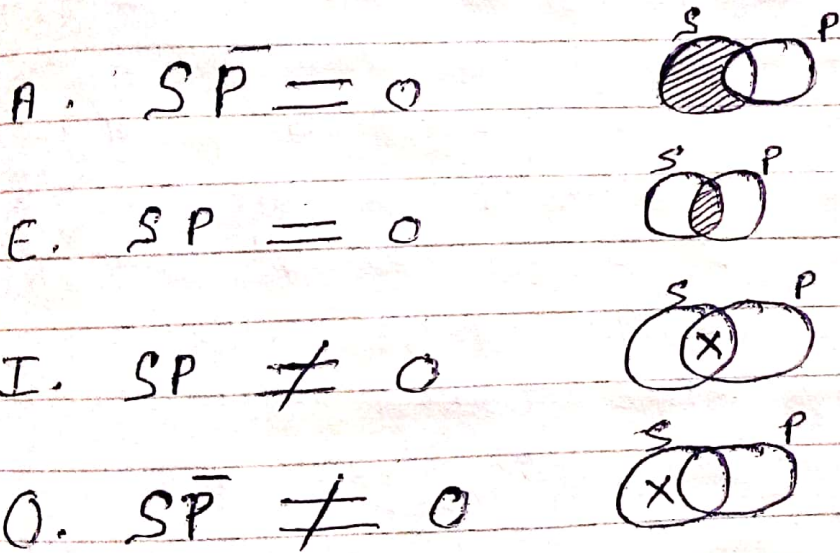 A. SP̅ = 0 S P
E. SP = 0 S P
I. SP ≠ 0 S P X
O. SP̅ ≠ 0 S P X